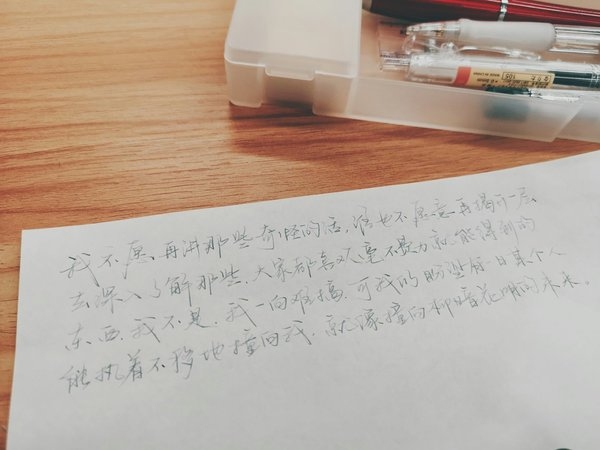 我不愿再讲那些奇怪的话,谁也不愿意再揭开一层
去深入了解那些,大家都喜欢毫不费力就能得到的
东西,我不是,我一向难搞,可我盼望有一日某个人
能执着不移地撞向我,就像撞向柳暗花明的未来。